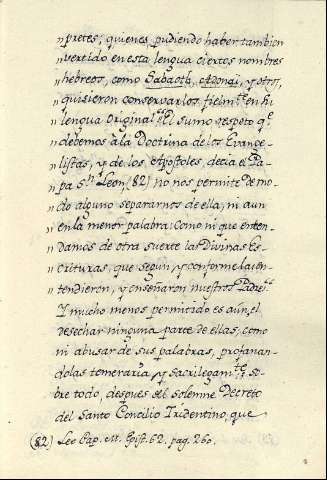 "pretes, quienes pudiendo haber tambien
"vertido en esta lengua ciertos nombres
"hebreos, como Sabaoth, Adonai, y otros,
"quisieron conservarlos fielm.te en su
"lengua original." El sumo respeto q.e
"debemos a la Doctrina de los Evange-
"listas, y de los Apostoles, decia el Pa-
"pa S.n Leon, (82) no nos permite de mo-
"do alguno separarnos de ella, ni aun
"en la menor palabra: Como ni que enten-
"damos de otra suerte las Divinas Es-
"crituras, que segun, y conforme las en-
"tendieron, y enseñaron nuestros Padres."
Y mucho menos permitido es aun, el
desechar ninguna parte de ellas; como
ni abusar de sus palabras, profanan-
dolas temeraria, y sacrilegam.te, so-
bre todo, despues del solemne Decreto
del Santo Concilio Tridentino, que
(82) Leo Pap. M. Epist. 62. pag. 260.